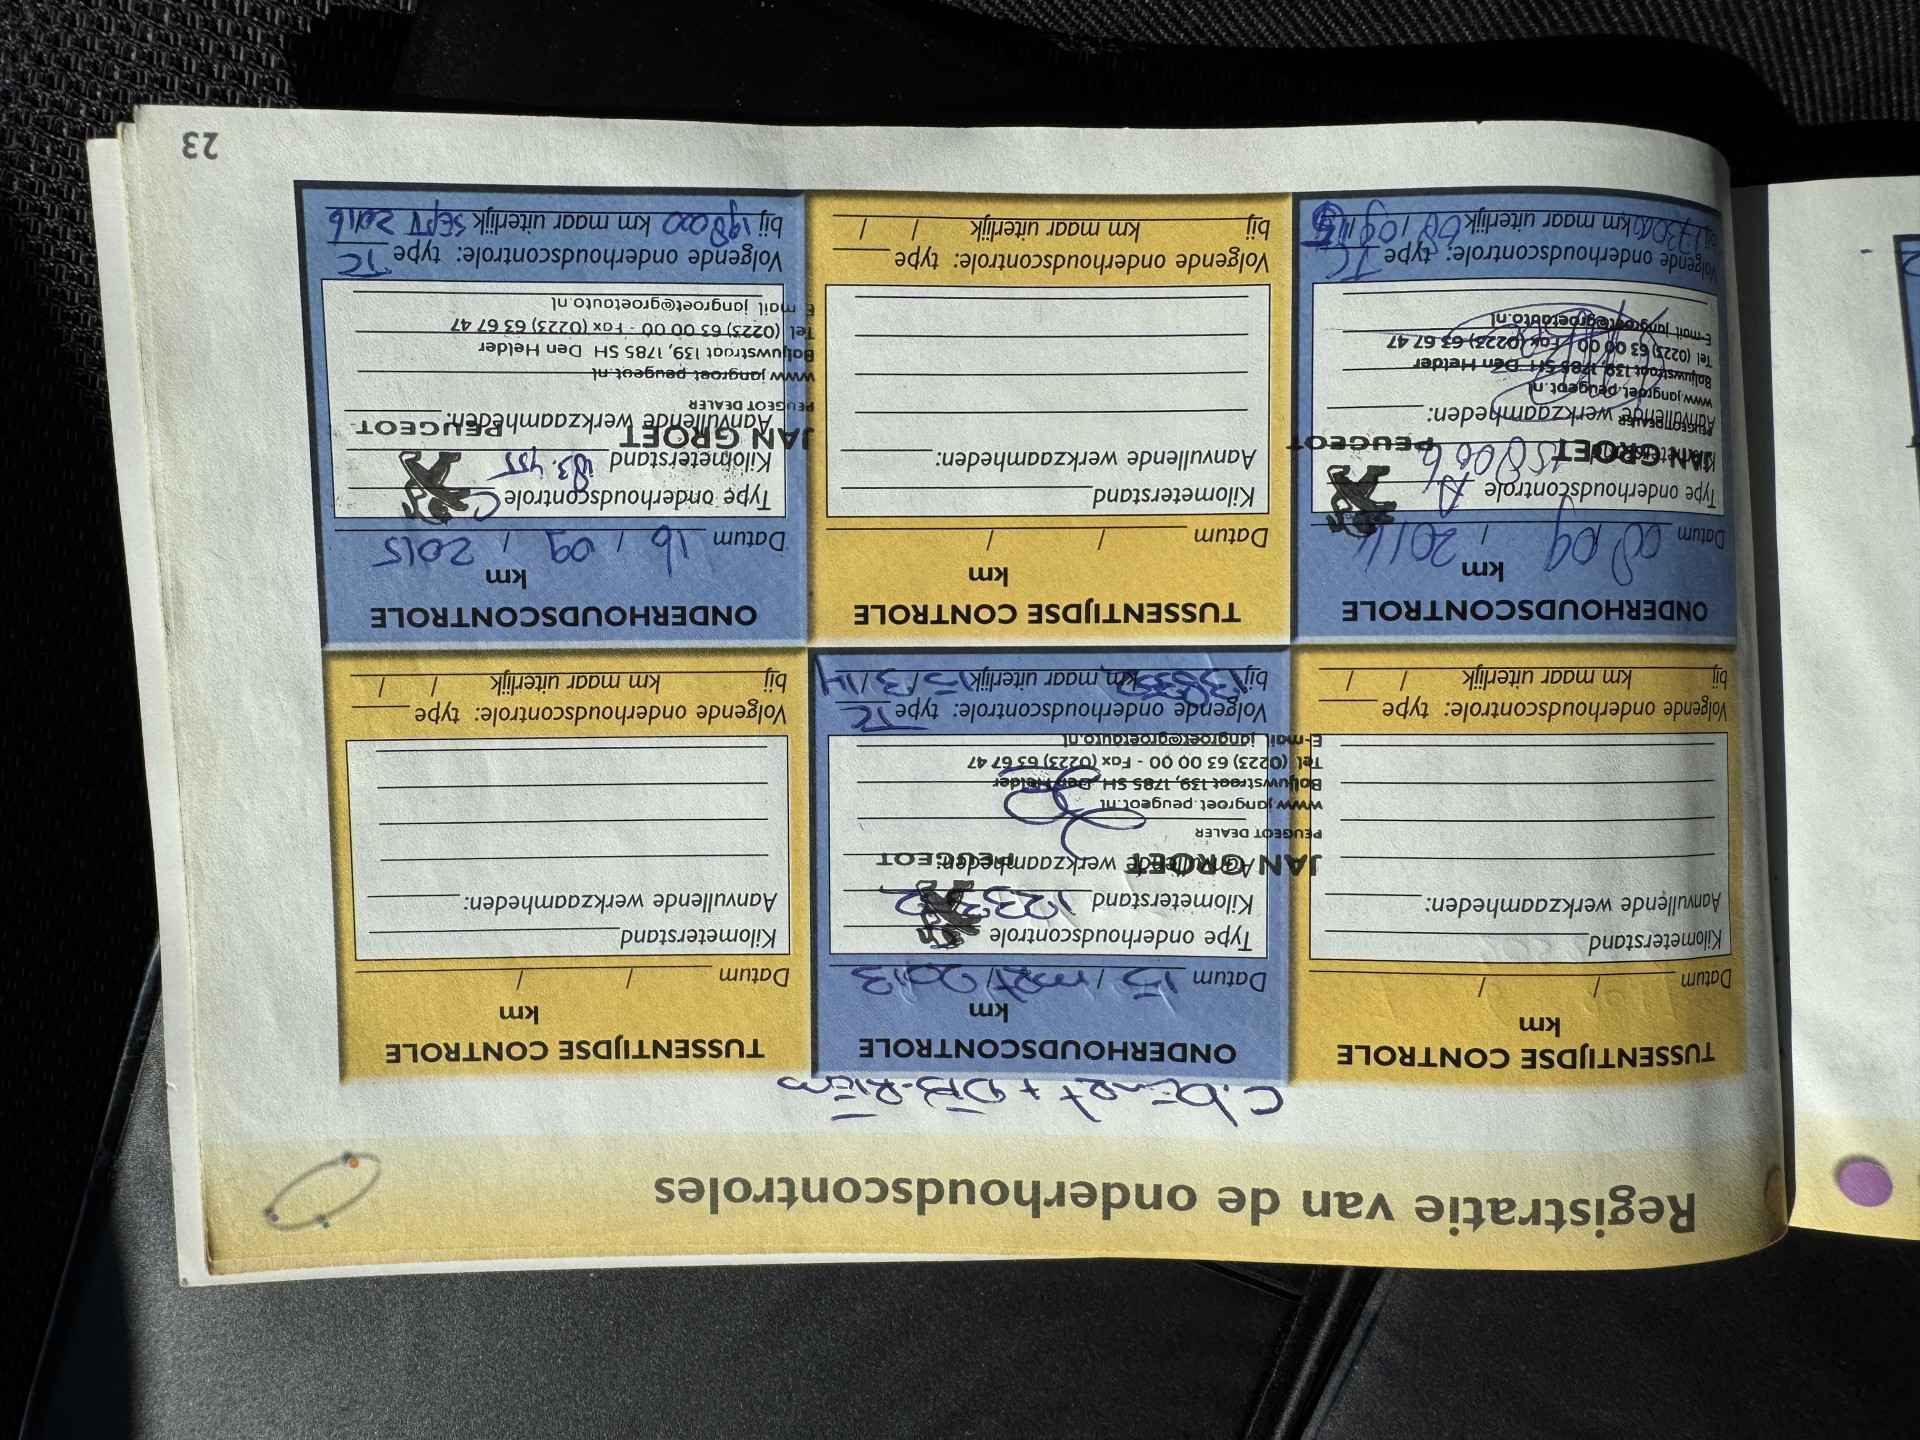 Registratie van de onderhoudscontroles
TUSSENTIJDSE CONTROLE
km
Datum / /
Kilometerstand
Aanvullende werkzaamheden:
Volgende onderhoudscontrole: type
bij km maar uiterlijk / /
ONDERHOUDSCONTROLE
km
Datum 15 / mrt / 2013
Type onderhoudscontrole
Kilometerstand 123332
Aanvullende werkzaamheden:
JAN GROET PEUGEOT
PEUGEOT DEALER
www.jangroet.peugeot.nl
Baljuwstraat 139, 1785 SH Den Helder
Tel. (0223) 63 00 00 - Fax (0223) 63 67 47
E-mail jangroet@groetauto.nl
Volgende onderhoudscontrole: type TC
bij km maar uiterlijk 15 / 3 / 14
TUSSENTIJDSE CONTROLE
km
Datum / /
Kilometerstand
Aanvullende werkzaamheden:
Volgende onderhoudscontrole: type
bij km maar uiterlijk / /
ONDERHOUDSCONTROLE
km
Datum 08 / 09 / 2014
Type onderhoudscontrole A
Kilometerstand 158006
Aanvullende werkzaamheden:
JAN GROET PEUGEOT
PEUGEOT DEALER
www.jangroet.peugeot.nl
Baljuwstraat 139, 1785 SH Den Helder
Tel (0223) 63 00 00 - Fax (0223) 63 67 47
E-mail jangroet@groetauto.nl
Volgende onderhoudscontrole: type TC
bij 173000 km maar uiterlijk 08 / 09 / 15
TUSSENTIJDSE CONTROLE
km
Datum / /
Kilometerstand
Aanvullende werkzaamheden:
Volgende onderhoudscontrole: type
bij km maar uiterlijk / /
ONDERHOUDSCONTROLE
km
Datum 16 / 09 / 2015
Type onderhoudscontrole C
Kilometerstand 183.455
Aanvullende werkzaamheden:
JAN GROET PEUGEOT
PEUGEOT DEALER
www.jangroet.peugeot.nl
Baljuwstraat 139, 1785 SH Den Helder
Tel (0223) 63 00 00 - Fax (0223) 63 67 47
E-mail jangroet@groetauto.nl
Volgende onderhoudscontrole: type TC
bij 198000 km maar uiterlijk SEPT 2016
23